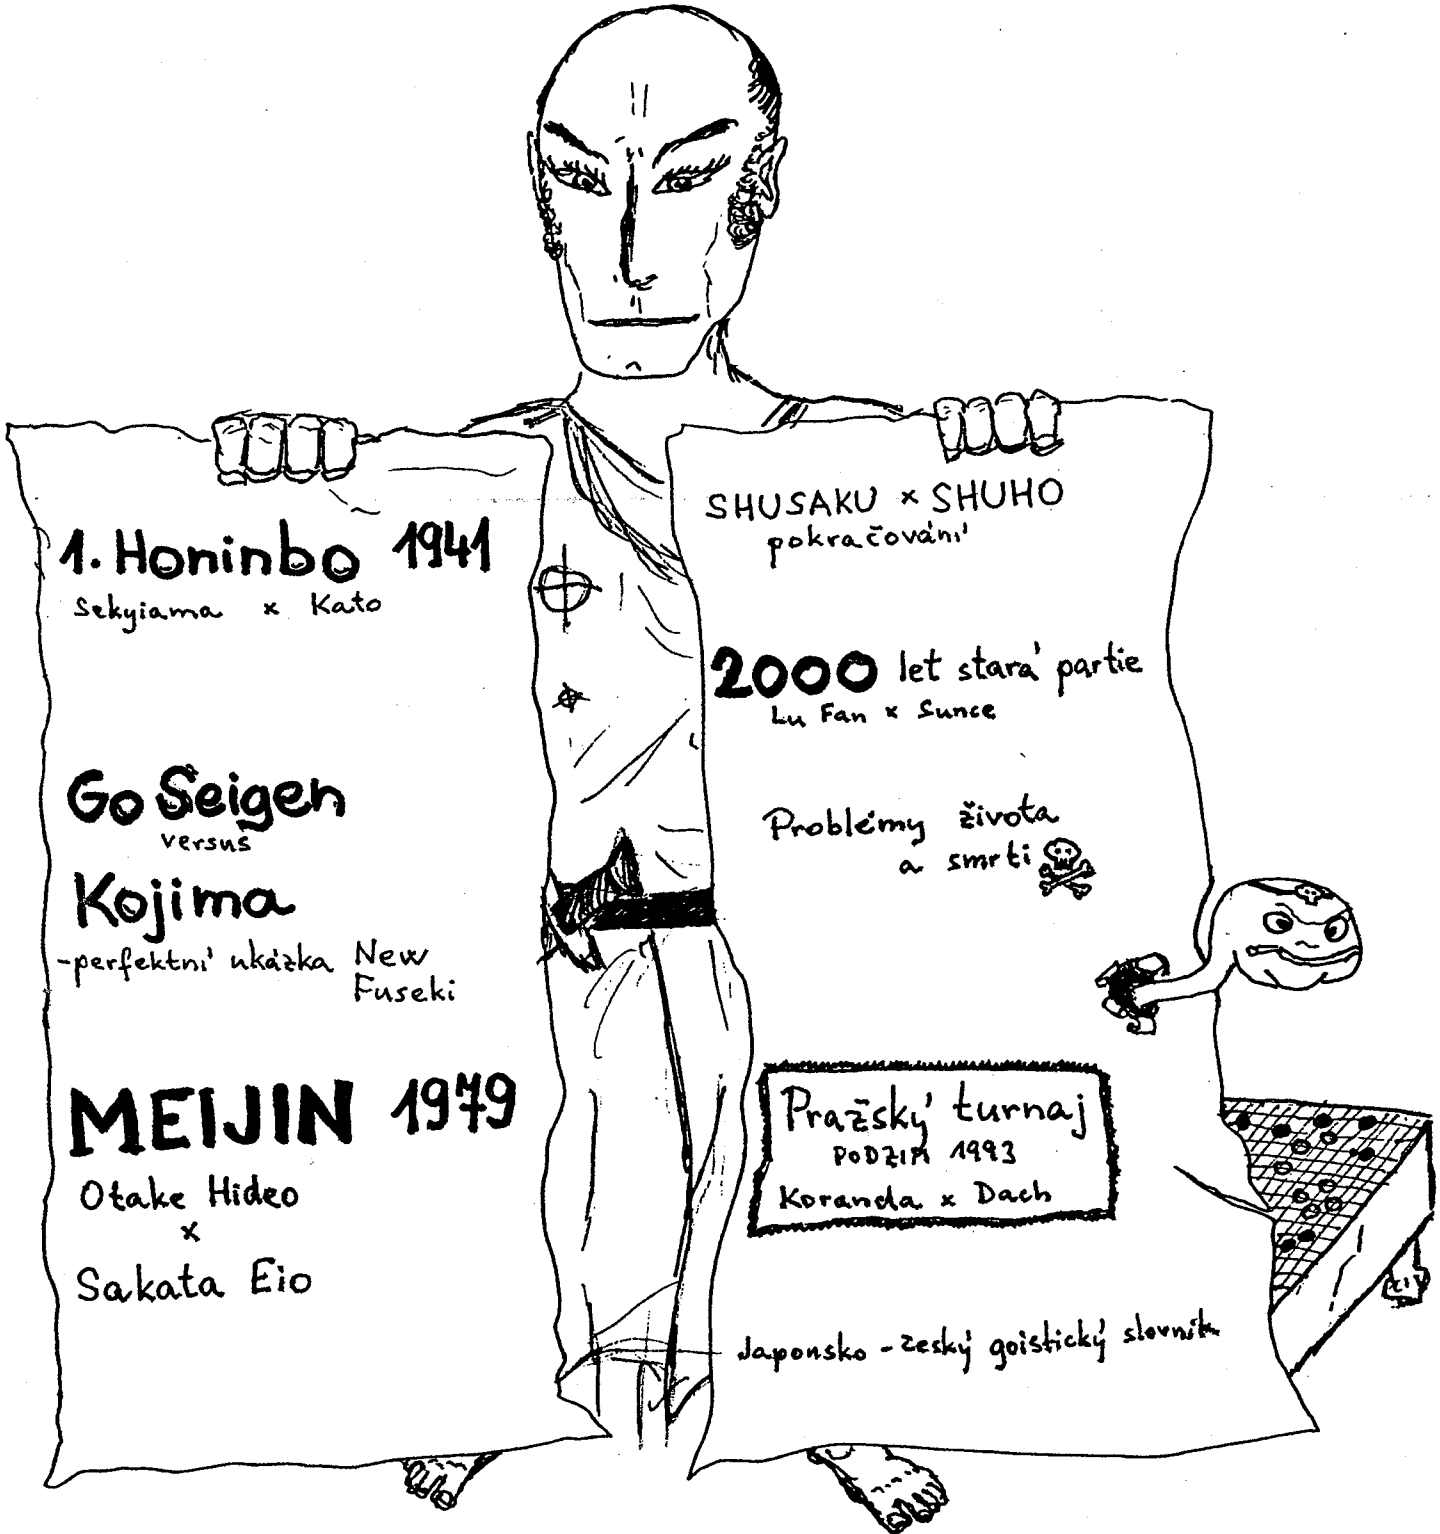 1. Honinbo 1941
Sekyiama x Kato
Go Seigen
versus
Kojima
-perfektní ukázka New
Fuseki
MEIJIN 1979
Otake Hideo
x
Sakata Eio
SHUSAKU x SHUHO
pokračování
2000 let stará partie
Lu Fan x Sunce
Problémy života
a smrti
Pražský turnaj
PODZIM 1993
Koranda x Dach
Japonsko - český goistický slovník